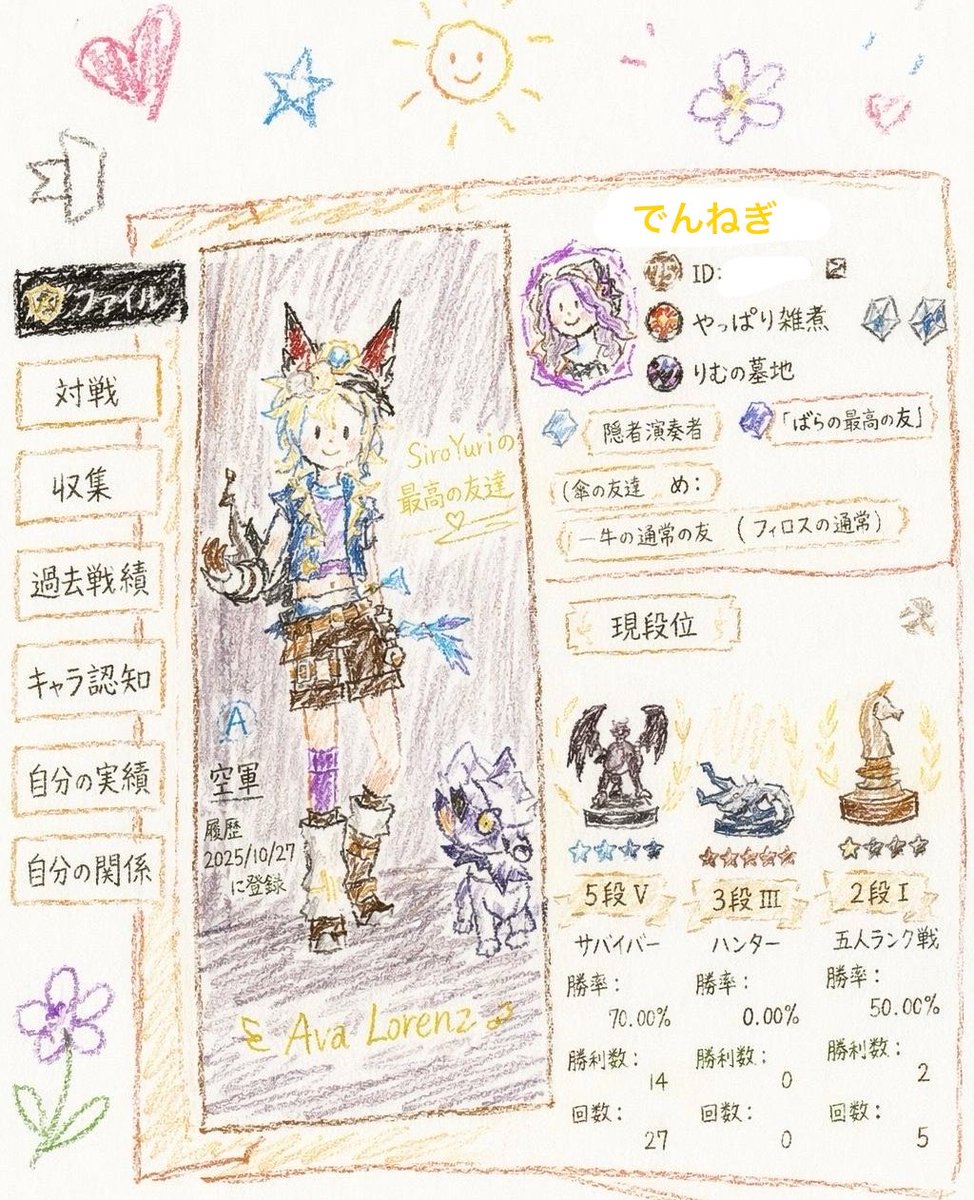 でんねぎ
ID:
やっぱり雑煮
りむの墓地
隠者演奏者
「ばらの最高の友」
(傘の友達 め:
一牛の通常の友 (フィロスの通常)
ファイル
対戦
収集
過去戦績
キャラ認知
自分の実績
自分の関係
SiroYuriの
最高の友達
A
空軍
履歴
2025/10/27
に登録
Ava Lorenz
現段位
5段 V
3段 III
2段 I
サバイバー
ハンター
五人ランク戦
勝率:
70.00%
勝率:
0.00%
勝率:
50.00%
勝利数:
14
勝利数:
0
勝利数:
2
回数:
27
回数:
0
回数:
5